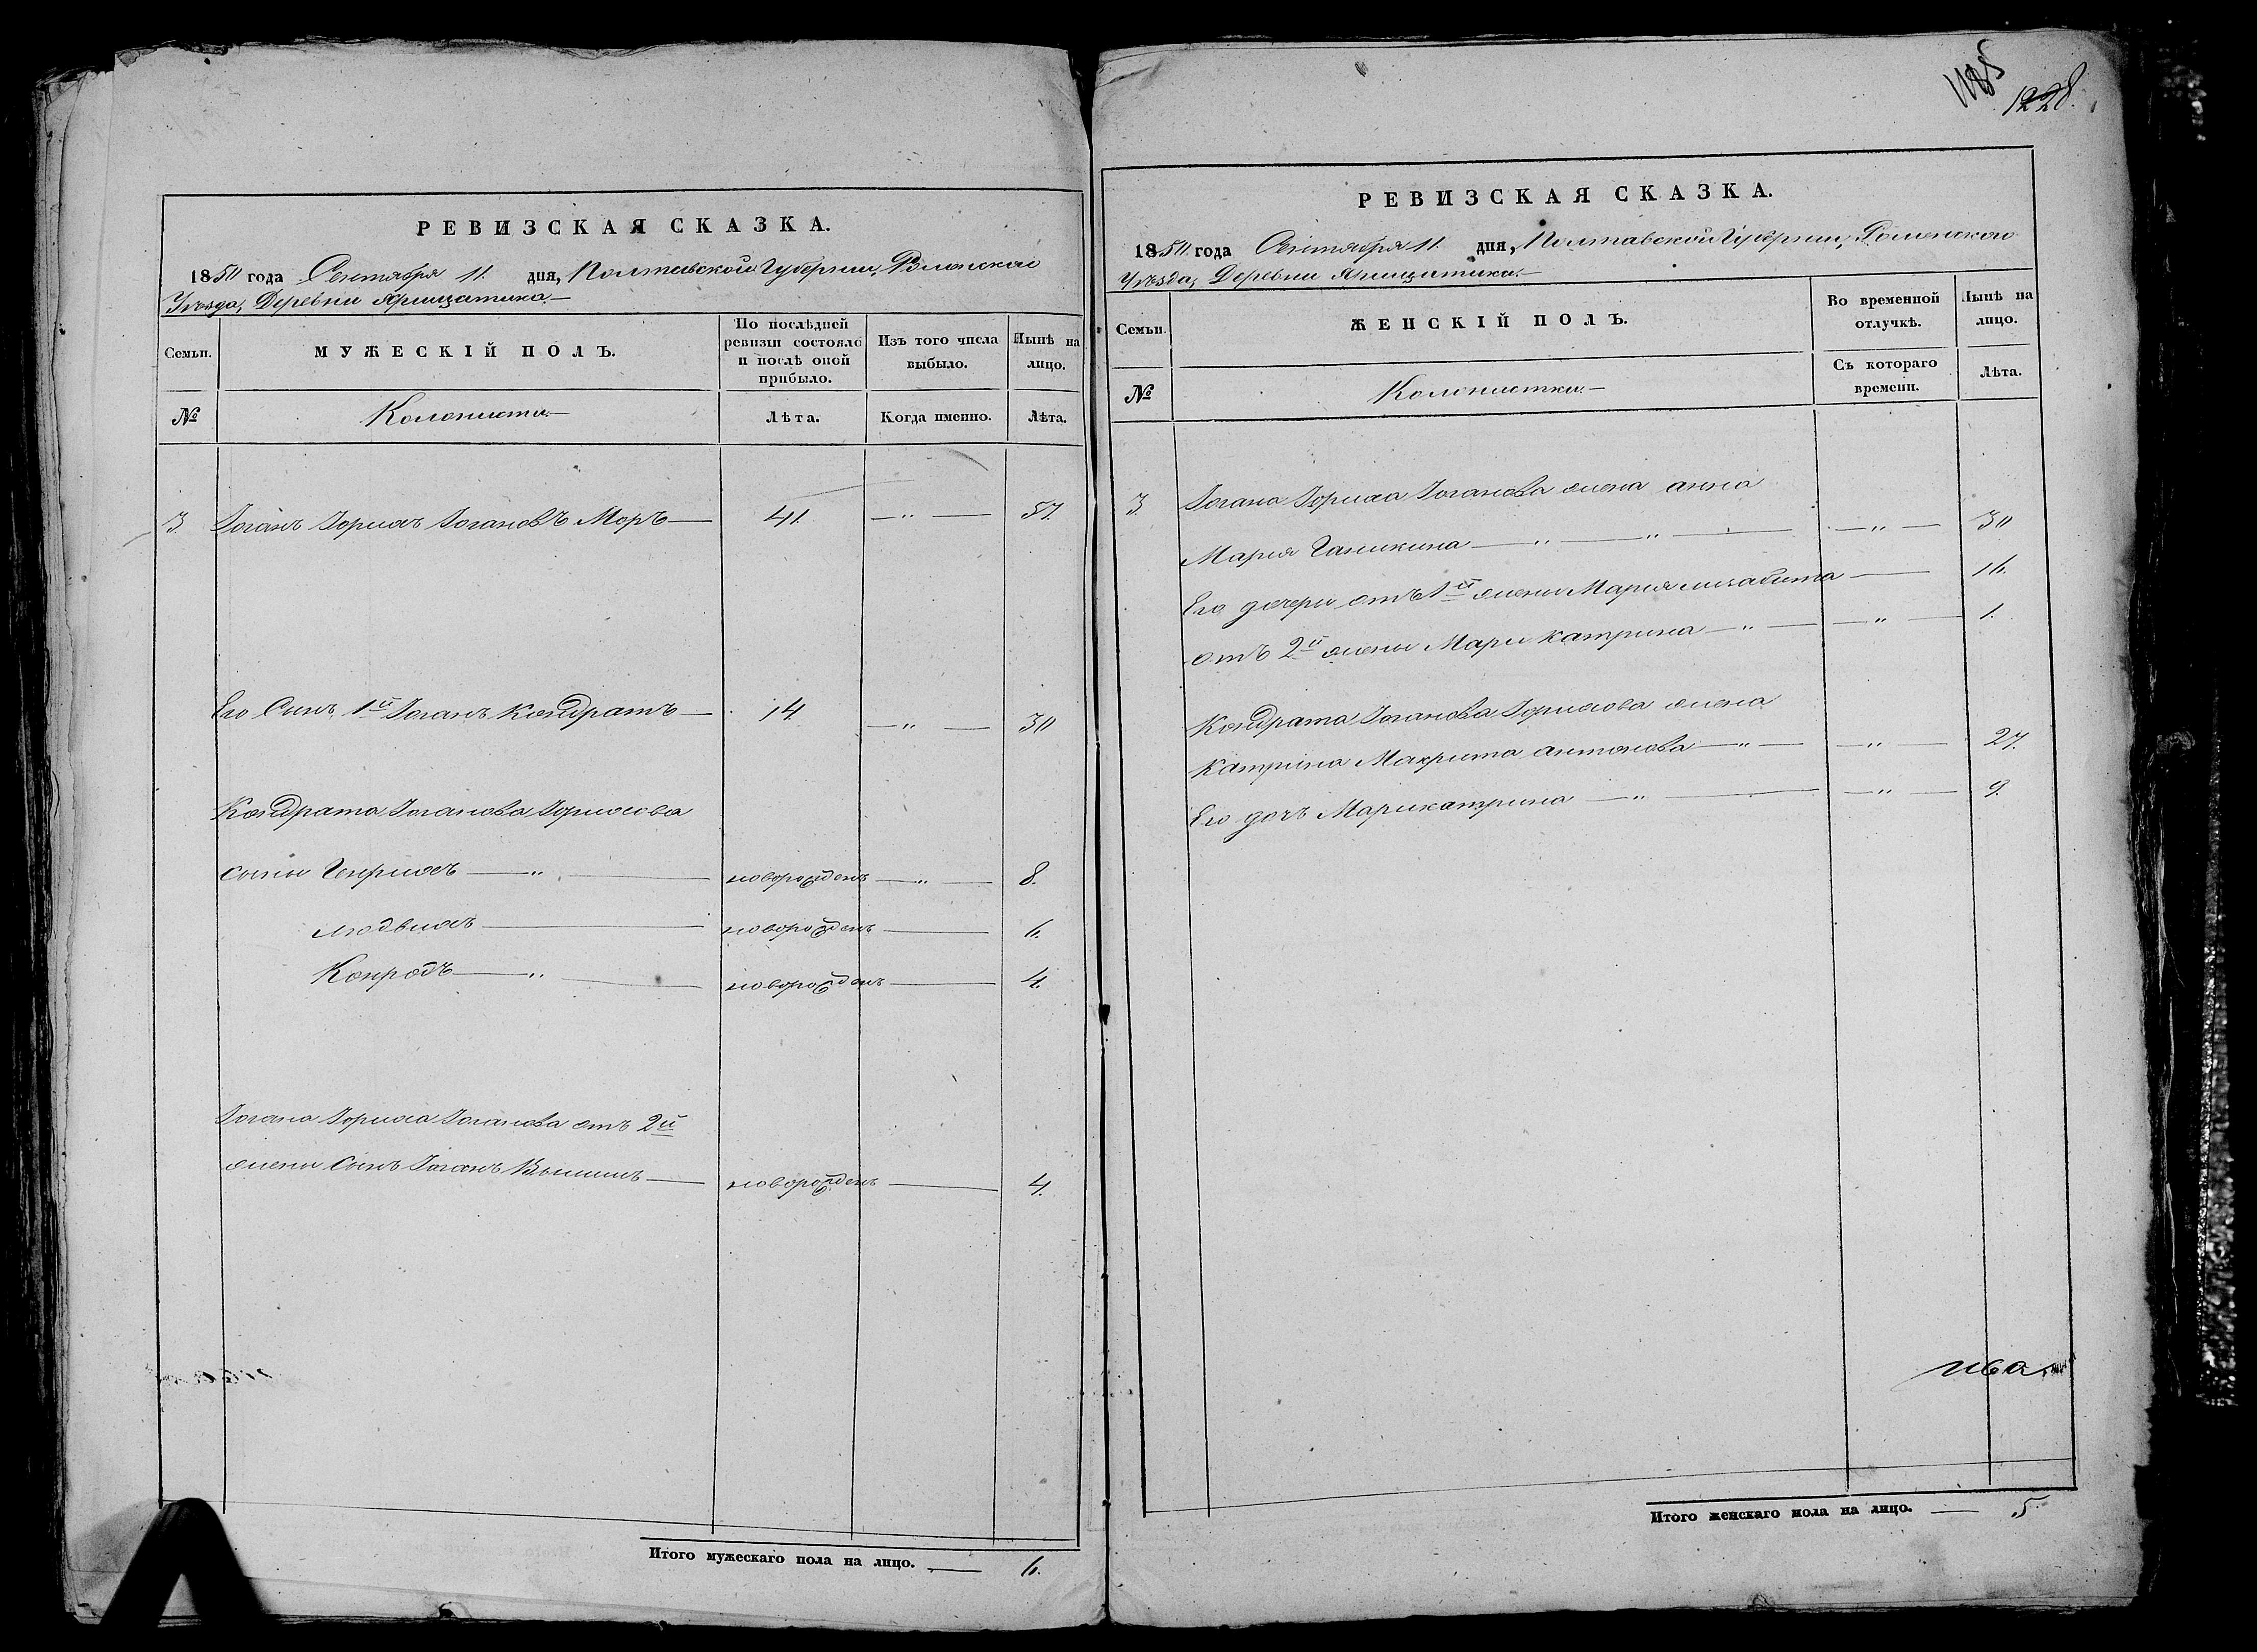 РЕВИЗСКАЯ СКАЗКА.
1850 года Сентября 11. дня, Полтавской Губернии, Роменскаго
Уѣзда, Деревни
Семьи.
МУЖЕСКІЙ ПОЛЪ.
По послѣдней ревизіи состояло и послѣ оной прибыло.
Изъ того числа выбыло.
Нынѣ на лицо.
№
Колонисты.—
Лѣта.
Когда именно.
Лѣта.
3. Іоганъ Іогановъ Моръ — 41. — " — 57.
Его Сынъ, 1й Іоганъ Кондратъ — 14 — " — 30
Кондрата Іоганова
сыны Генрихъ — " — новорожденъ — " — 8.
людвихъ — новорожденъ — 6.
Конродъ — " — новорожденъ — 4.
Іогана Іоганова отъ 2й
жены Сынъ Іоганъ — новорожденъ — 4.
Итого мужескаго пола на лицо. — 6.
1228.
РЕВИЗСКАЯ СКАЗКА.
1850 года Сентября 11. дня, Полтавской Губернии, Роменского
Уѣзда, Деревни
Семьи.
ЖЕНСКІЙ ПОЛЪ.
Во временной отлучкѣ.
Нынѣ на лицо.
№
Колонистки.—
Съ котораго времени.
Лѣта.
3. Іогана Іоганова жена анна
Мария — " — " — — " — 30
Его дочери отъ 1й жены Мария лизабета — 16.
отъ 2й жены Мари катрина — " — — " — 1.
Кондрата Іоганова жена
Катрина Макрита антонова — " — — " — 27.
Его дочь Марикатрина — " — — " — 9.
Итого женскаго пола на лицо. — 5.